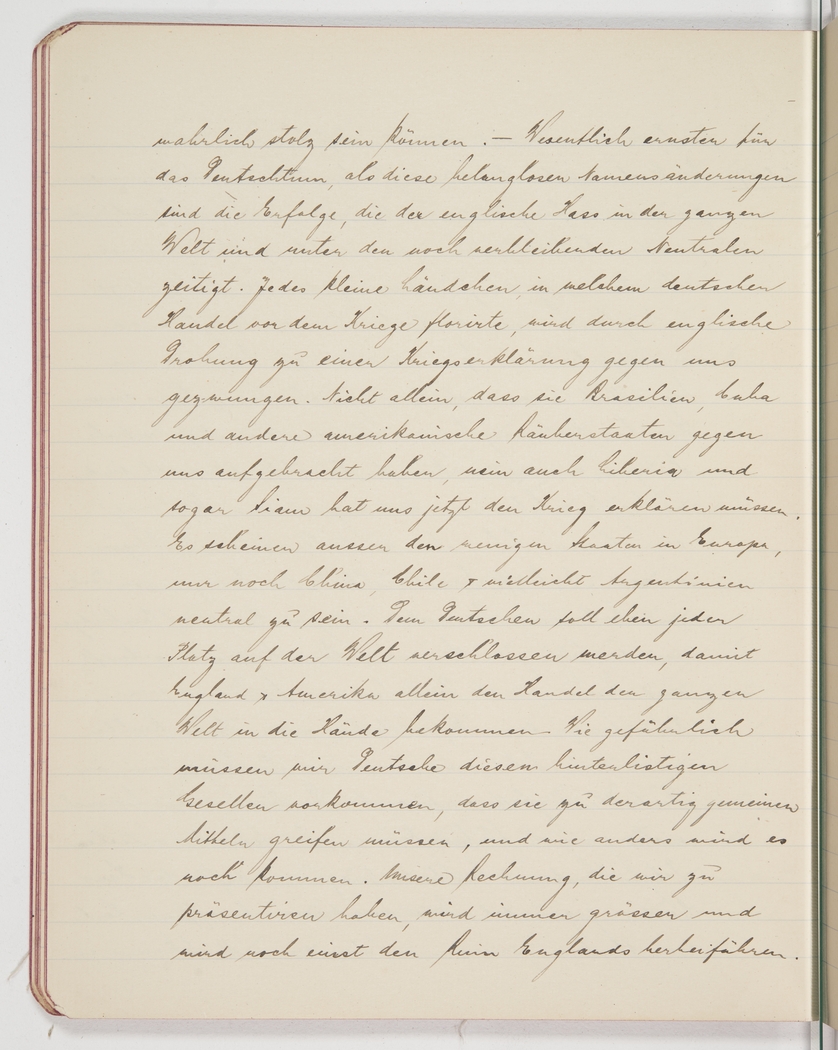 wahrlich stolz sein können. — Wesentlich ernster für
das Deutschtum, als diese belanglosen Namensänderungen
sind die Erfolge, die der englische Hass in der ganzen
Welt und unter den noch verbleibenden Neutralen
zeitigt. Jedes kleine Ländchen, in welchem deutscher
Handel vor dem Kriege florirte, wird durch englische
Drohung zu einer Kriegserklärung gegen uns
gezwungen. Nicht allein, dass sie Brasilien, Cuba
und andere amerikanische Räuberstaaten gegen
uns aufgebracht haben, nein auch Liberia und
sogar Siam hat uns jetzt den Krieg erklären müssen.
Es scheinen ausser den wenigen Staaten in Europa,
nur noch China, Chile & vielleicht Argentinien
neutral zu sein. Dem Deutschen soll eben jeder
Platz auf der Welt verschlossen werden, damit
England & Amerika allein den Handel der ganzen
Welt in die Hände bekommen. Wie gefährlich
müssen wir Deutsche diesen hinterlistigen
Gesellen vorkommen, dass sie zu derartig gemeinen
Mitteln greifen müssen, und wie anders wird es
noch kommen. Unsere Rechnung, die wir zu
präsentiren haben, wird immer grösser und
wird noch einst den Ruin Englands herbeiführen.